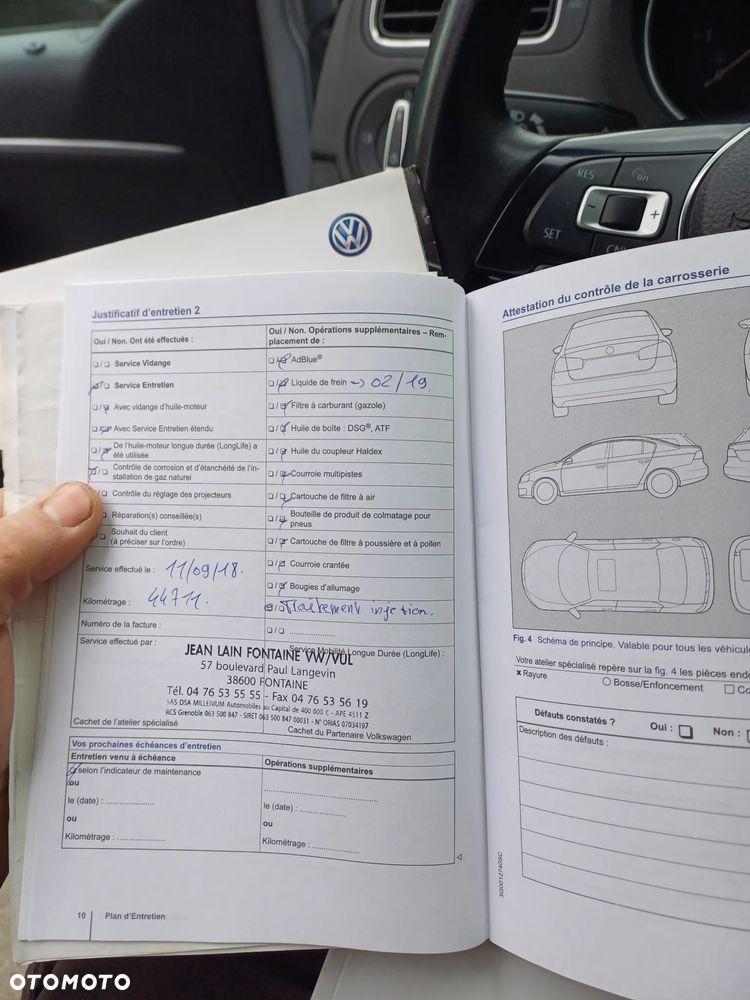 RES
SET
Justificatif d'entretien 2
Oui / Non. Ont été effectués :
Oui / Non. Opérations supplémentaires – Rem-
placement de :
Service Vidange
AdBlue®
Service Entretien
Liquide de frein -> 02/19.
Avec vidange d'huile-moteur
Filtre à carburant (gazole)
Avec Service Entretien étendu
Huile de boîte : DSG®, ATF
De l'huile-moteur longue durée (LongLife) a
été utilisée
Huile du coupleur Haldex
Contrôle de corrosion et d'étanchéité de l'in-
stallation de gaz naturel
Courroie multipistes
Contrôle du réglage des projecteurs
Cartouche de filtre à air
Réparation(s) conseillée(s)
Bouteille de produit de colmatage pour
pneus
Souhait du client
(à préciser sur l'ordre)
Cartouche de filtre à poussière et à pollen
Courroie crantée
Service effectué le : 11/09/18.
Bougies d'allumage
Kilométrage : 44711.
Traitement injection.
Numéro de la facture :
Service effectué par :
Service Mobilité Longue Durée (LongLife) :
JEAN LAIN FONTAINE VW/VUL
57 boulevard Paul Langevin
38600 FONTAINE
Tél. 04 76 53 55 55 - Fax 04 76 53 56 19
SAS DSA MILLENIUM Automobiles au Capital de 400 000 € - APE 4511 Z
RCS Grenoble 063 500 847 - SIRET 063 500 847 00031 - N° ORIAS 07034197
Cachet de l'atelier spécialisé
Cachet du Partenaire Volkswagen
Vos prochaines échéances d'entretien
Entretien venu à échéance
Opérations supplémentaires
selon l'indicateur de maintenance
ou
le (date) : ....................
le (date) : ....................
ou
ou
Kilométrage : ....................
Kilométrage : ....................
10 Plan d'Entretien
Attestation du contrôle de la carrosserie
Fig. 4 Schéma de principe. Valable pour tous les
Votre atelier spécialisé repère sur la fig. 4 les pièces
x Rayure
Bosse/Enfoncement
Défauts constatés ?
Oui :
Non :
Description des défauts :
3G0012740SC
OTOMOTO